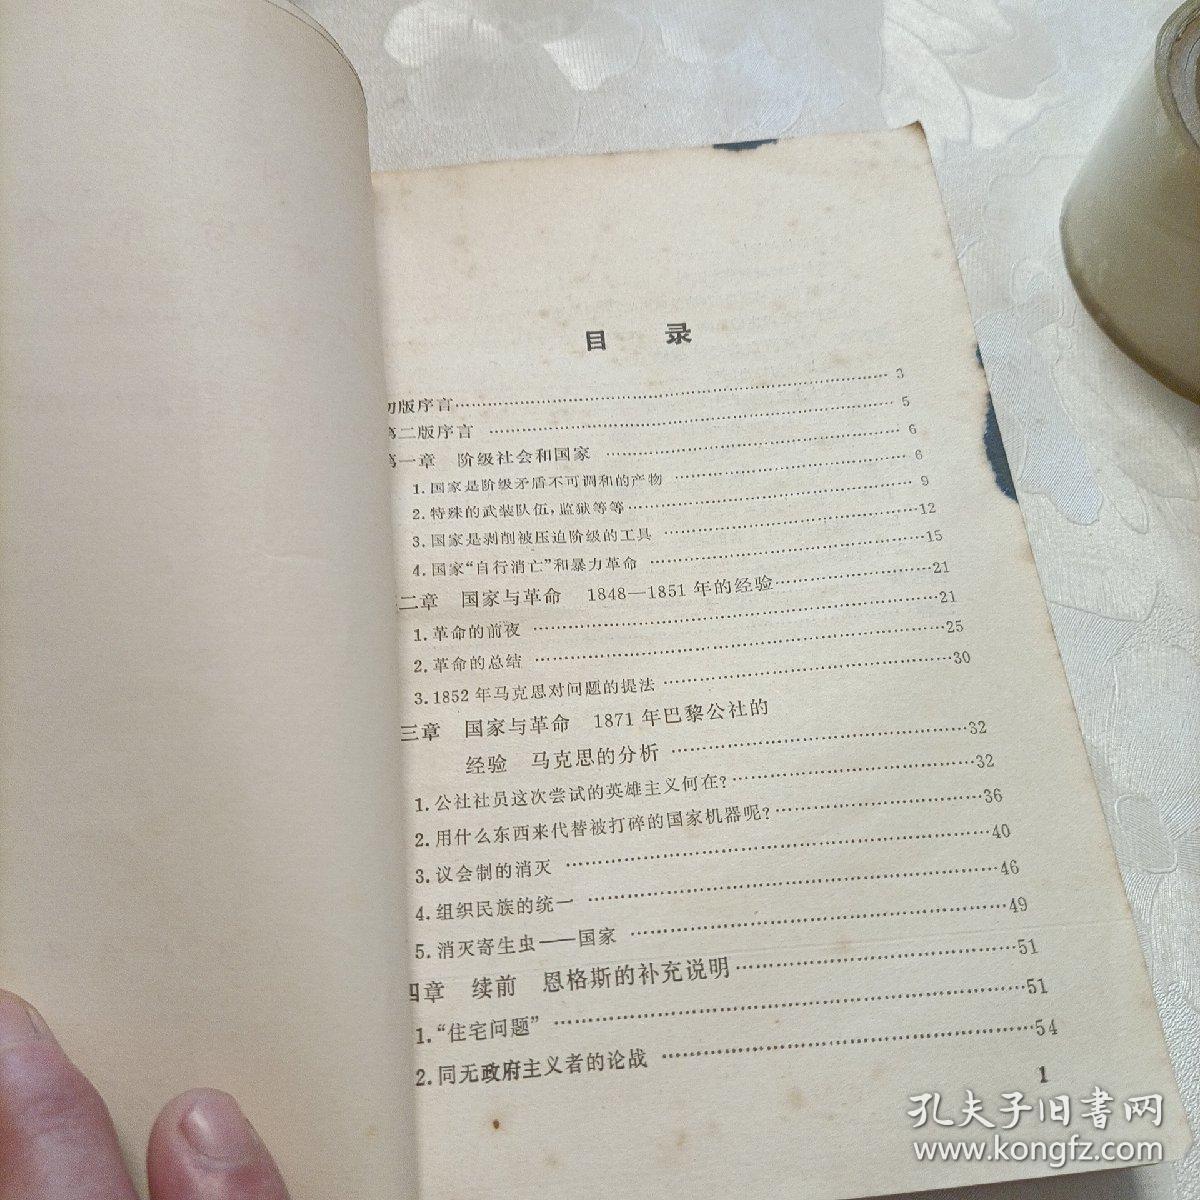 目 录
初版序言……3
第二版序言……5
第一章 阶级社会和国家……6
1.国家是阶级矛盾不可调和的产物……6
2.特殊的武装队伍,监狱等等……9
3.国家是剥削被压迫阶级的工具……12
4.国家“自行消亡”和暴力革命……15
二章 国家与革命 1848—1851年的经验……21
1.革命的前夜……21
2.革命的总结……25
3.1852年马克思对问题的提法……30
三章 国家与革命 1871年巴黎公社的
经验 马克思的分析……32
1.公社社员这次尝试的英雄主义何在?……32
2.用什么东西来代替被打碎的国家机器呢?……36
3.议会制的消灭……40
4.组织民族的统一……46
5.消灭寄生虫——国家……49
四章 续前 恩格斯的补充说明……51
1.“住宅问题”……51
2.同无政府主义者的论战……54
1
孔夫子旧书网
www.kongfz.com